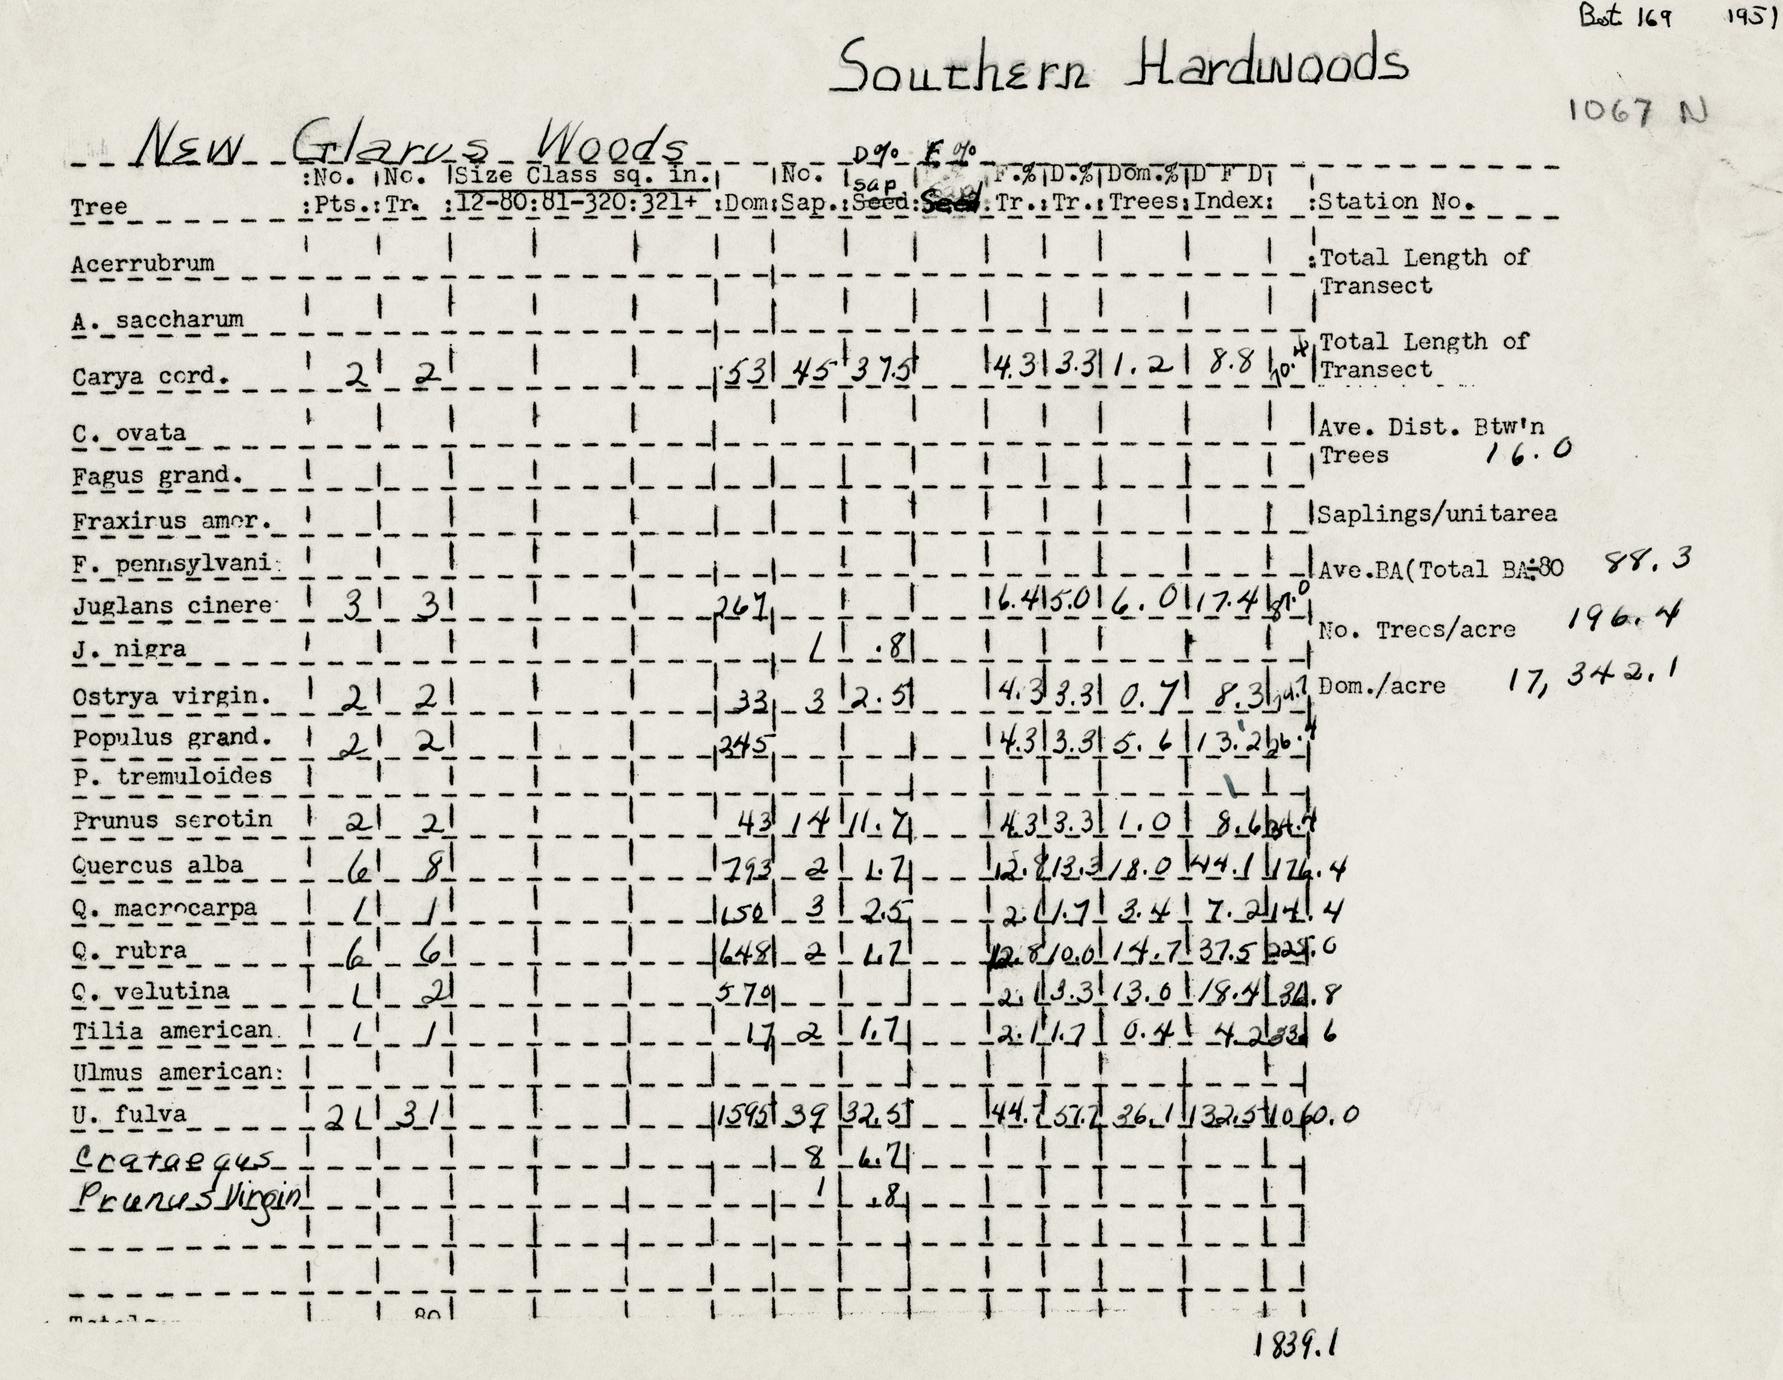 Bot 169 1951
Southern Hardwoods
1067 N
New Glarus Woods D% F%
:No. No. Size Class sq. in. No. sap F.% D.% Dom.% D F D
Tree :Pts.: Tr. :12-80:81-320:321+ :Dom: Sap.: Seed: Seed Tr.: Tr.: Trees: Index: :Station No.
Acerrubrum :Total Length of
Transect
A. saccharum
Total Length of
Carya cord. 2 2 53 45 37.5 4.3 3.3 1.2 8.8 Transect
C. ovata Ave. Dist. Btw'n
Trees 16.0
Fagus grand.
Fraxirus amer. Saplings/unitarea
F. pennsylvani: Ave.BA(Total BA÷80 88.3
Juglans cinere 3 3 267 6.4 5.0 6.0 17.4 87.0
No. Trees/acre 196.4
J. nigra 1 .8
Ostrya virgin. 2 2 33 3 2.5 4.3 3.3 0.7 8.3 Dom./acre 17,342.1
Populus grand. 2 2 245 4.3 3.3 5.6 13.2 26.4
P. tremuloides
Prunus serotin 2 2 43 14 11.7 4.3 3.3 1.0 8.6 34.4
Quercus alba 6 8 793 2 1.7 12.8 13.3 18.0 44.1 176.4
Q. macrocarpa 1 1 150 3 2.5 2.1 1.7 3.4 7.2 14.4
Q. rubra 6 6 648 2 1.7 12.8 10.0 14.7 37.5 225.0
Q. velutina 1 2 570 2.1 3.3 13.0 18.4 36.8
Tilia american. 1 1 17 2 1.7 2.1 1.7 0.4 4.2 33.6
Ulmus american:
U. fulva 21 31 1595 39 32.5 44.7 51.7 36.1 132.5 1060.0
Crataegus 8 6.7
Prunus Virgin 1 .8
Totals 80
1839.1